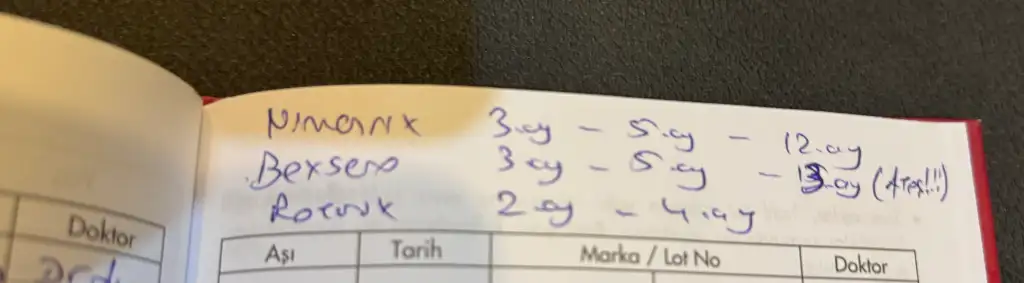 Nimenrix 3.ay - 5.ay - 12.ay
Bexsero 3 ay - 5.ay - 13.ay (Ateş!!!)
Rotarix 2.ay - 4.ay
Doktor
Aşı Tarih Marka / Lot No Doktor